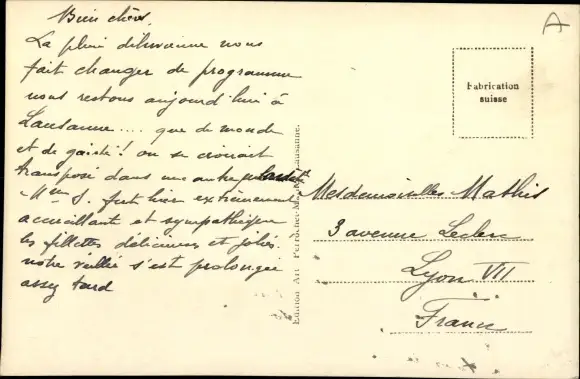 Bien chères,
La pluie diluvienne nous
fait changer de programme
nous restons aujourd'hui à
Lausanne.... que de monde
et de gaieté! on se croirait
transposé dans une autre
Mme J. fut hier extrêmement
accueillante et sympathique
les fillettes délicieuses et jolies.
notre veillée s'est prolongée
assez tard
A
Fabrication
suisse
Edition Art Perrochet Lausanne.
Mesdemoiselles Mathis
3 avenue Leclerc
Lyon VII
France